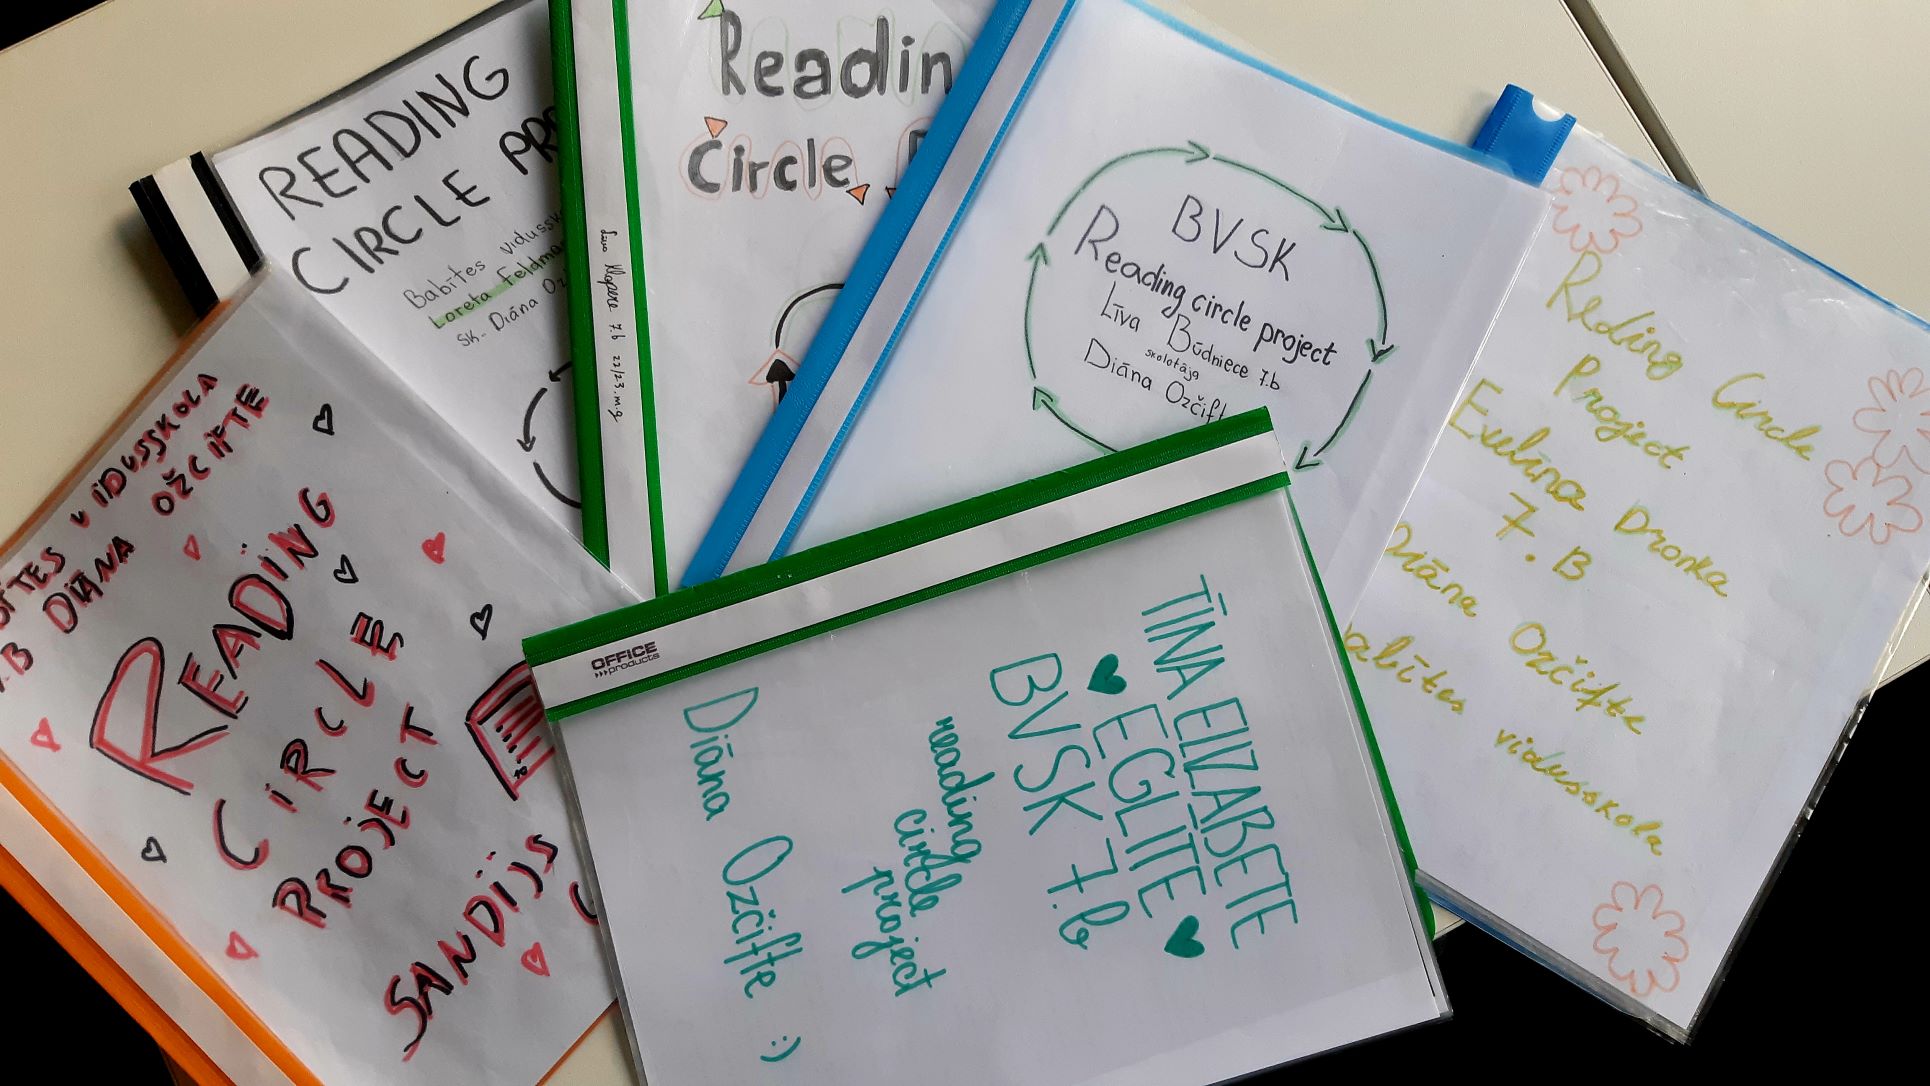 READING
CIRCLE PRO
Babītes vidussk
Loreta Feldma
sk. Diāna Oz
Readin
Circle
Līva Klapere 7.b 22/23.m.g
BVSK
Reading circle project
Līva Būdniece 7.b
skolotāja
Diāna Ozčift
Reding Circle
Project
Evelīna Dronka
7.B
Diāna Ozčifte
abītes vidusskola
VIDUSSKOLA
DIĀNA OŽCIFTE
READING
CIRCLE
PROJECT
SANDIJS
OFFICE
products
TĪNA ELIZABETE
EGLĪTE
BVSK 7.b
reading
circle
project
Diāna Ozčifte :)